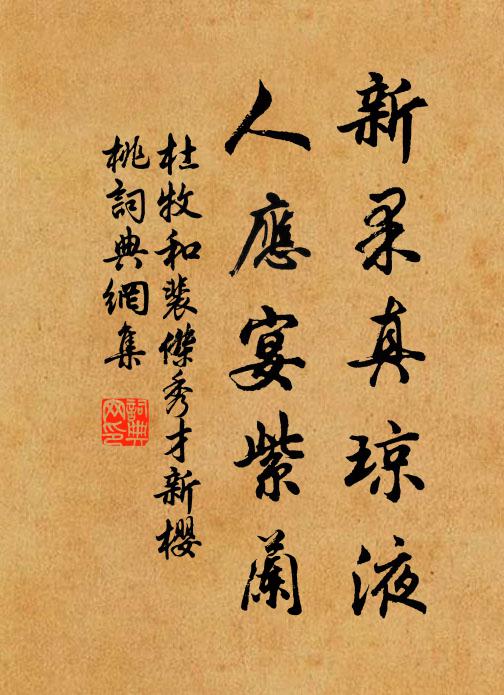 新果真琼液
人應宴紫蘭
杜牧和裴傑秀才新櫻
桃詞典網集
詞典
网印